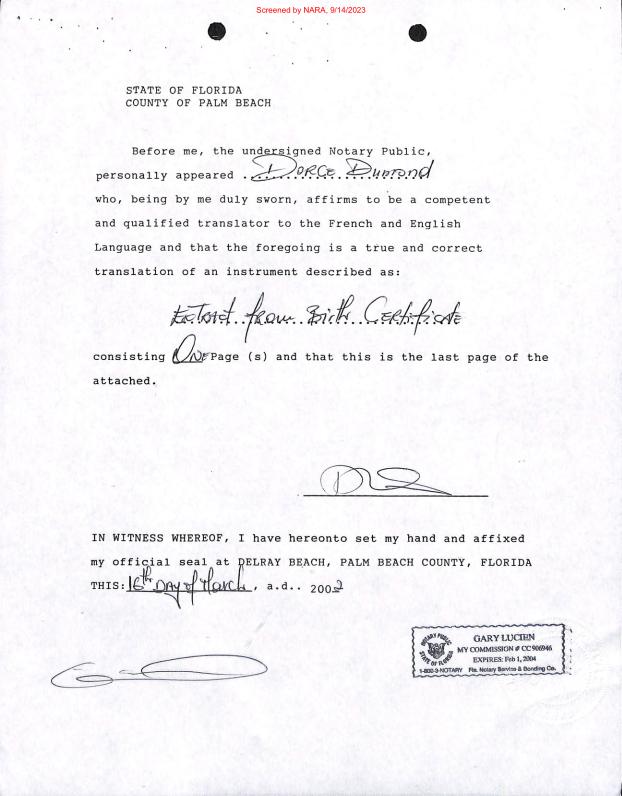 Screened by NARA, 9/14/2023
STATE OF FLORIDA
COUNTY OF PALM BEACH
Before me, the undersigned Notary Public,
personally appeared . Dorce Dumond
who, being by me duly sworn, affirms to be a competent
and qualified translator to the French and English
Language and that the foregoing is a true and correct
translation of an instrument described as:
Extract from Birth Certificate
consisting One Page (s) and that this is the last page of the
attached.
IN WITNESS WHEREOF, I have hereonto set my hand and affixed
my official seal at DELRAY BEACH, PALM BEACH COUNTY, FLORIDA
THIS: 16th Day of March, a.d.. 2002
NOTARY PUBLIC
STATE OF FLORIDA
GARY LUCIEN
MY COMMISSION # CC 906946
EXPIRES: Feb 1, 2004
1-800-3-NOTARY Fla. Notary Service & Bonding Co.